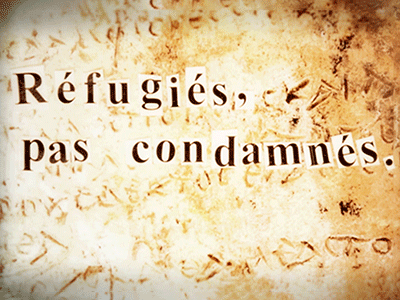 Réfugiés,
pas condamnés.